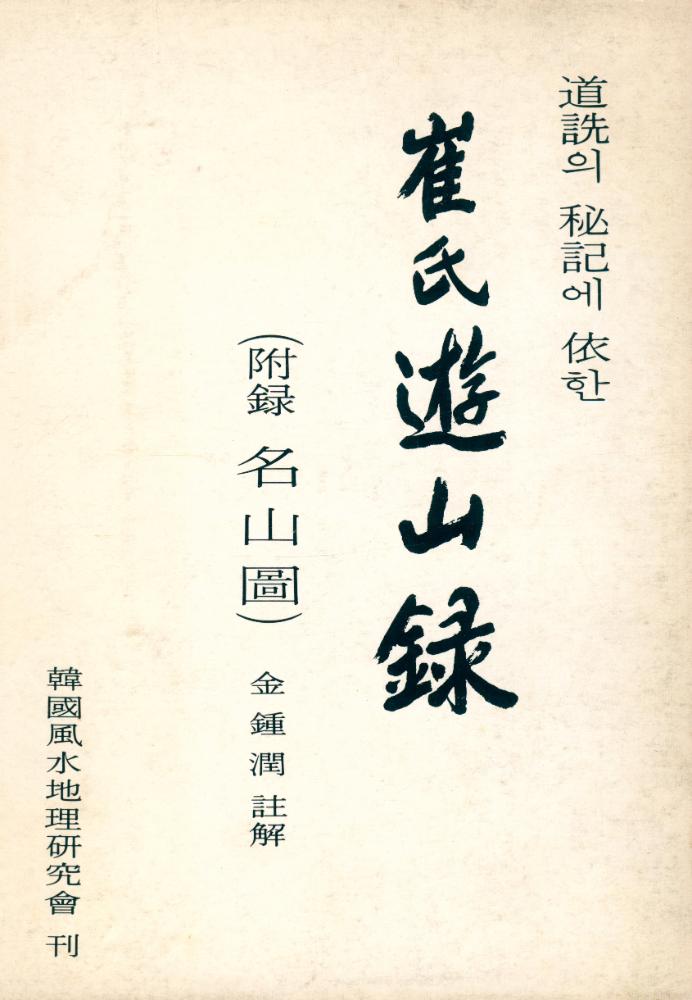 道詵의 秘記에 依한
崔氏遊山録
(附録 名山圖)
金鍾潤 註解
韓國風水地理研究會 刊